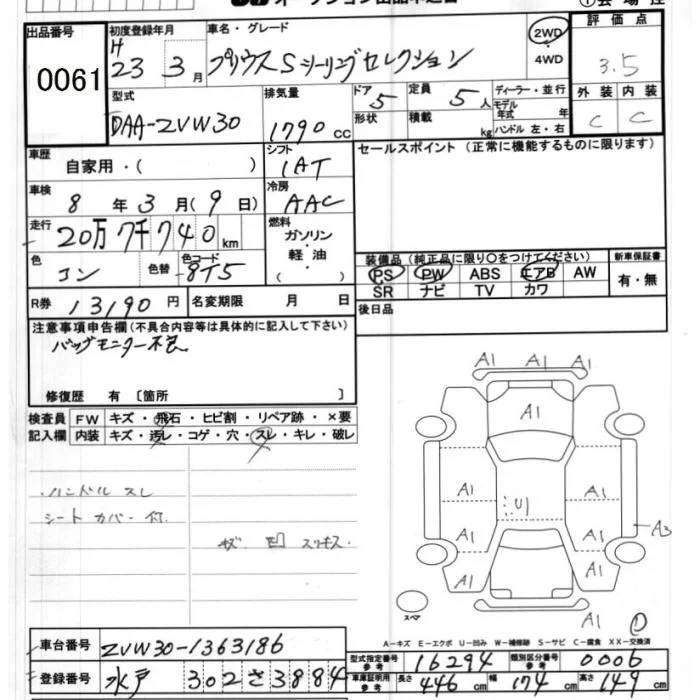 出品番号 0061
初度登録年月 H 23 3月
車名・グレード プリウス Sツーリングセレクション
2WD・4WD
評価点 3.5
外装 C 内装 C
型式 DAA-ZVW30
排気量 1790 CC
ドア 5 形状
定員 5人 積載 kg
ディーラー・並行
モデル年式 年
ハンドル 左・右
車歴 自家用・( )
シフト IAT
セールスポイント (正常に機能するものに限ります)
車検 8年3月(9日)
冷房 AAC
走行 20万7千740km
燃料 ガソリン・軽油・( )
色 コン 色替 色コード 8T5
装備品 (純正品に限り○をつけてください)
PS PW ABS エアB AW
SR ナビ TV カワ
新車保証書 有・無
R券 13190円 名変期限 月 日
後日品
注意事項申告欄(不具合内容等は具体的に記入して下さい)
バックモニター不良
修復歴 有 〔箇所 〕
検査員記入欄
FW キズ・飛石・ヒビ割・リペア跡・×要
内装 キズ・汚レ・コゲ・穴・スレ・キレ・破レ
・ハンドル スレ
シート カバー 付.
キズ 凹 スリキズ
A1 A1 A1
A1
A1 A1
U1
A1 A1
A3
A1 A1
A1
スペア
A−キズ E−エクボ U−凹み W−補修跡 S−サビ C−腐食 XX−交換済
車台番号 ZVW30-1363186
登録番号 水戸 302 さ 3884
型式指定番号 参考 16294 類別区分番号 参考 0006
車庫証明用 参考 長さ 446cm 幅 174cm 高さ 149cm